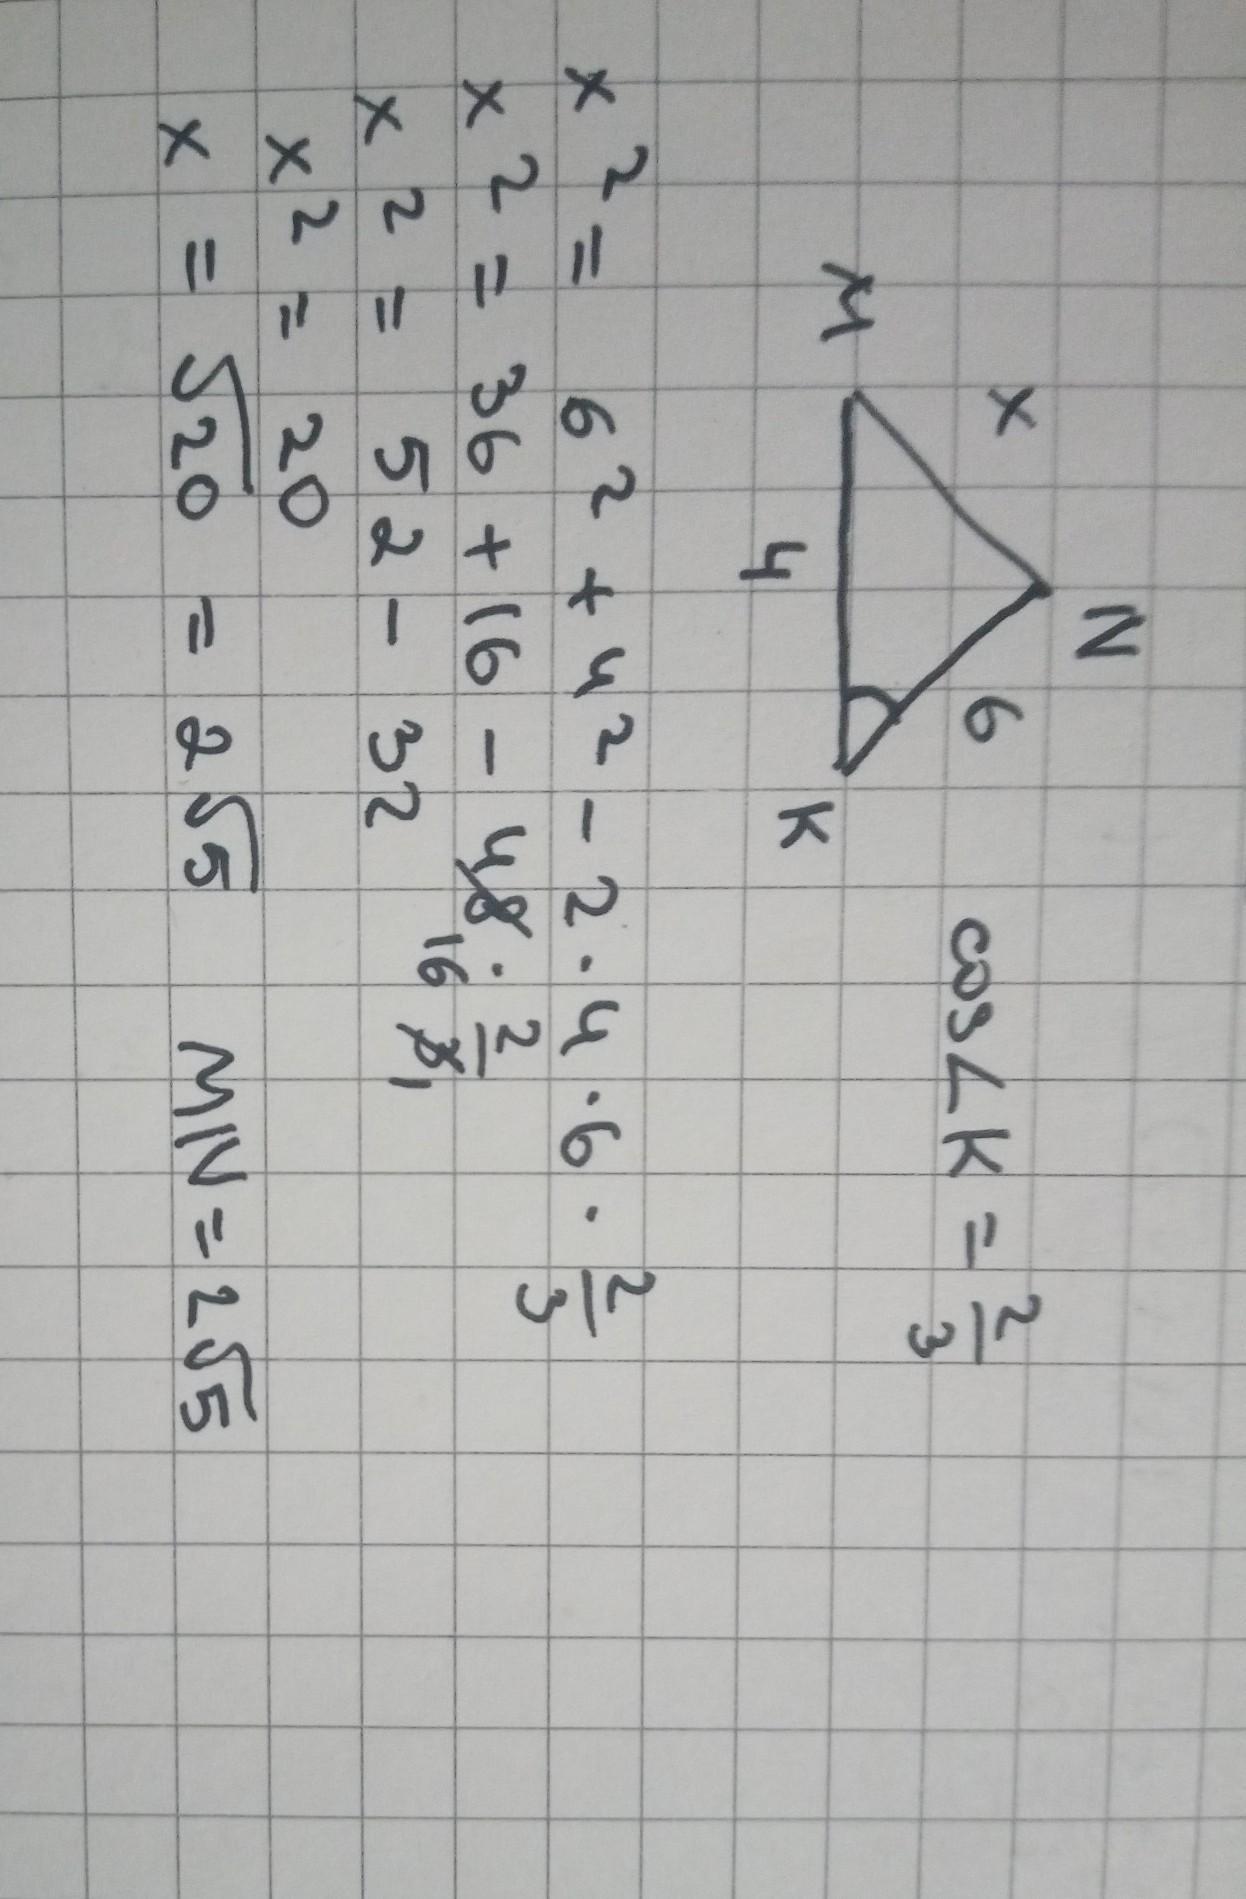 N
x
6
cos∠K = 2/3
M
K
4
x² = 6² + 4² - 2 · 4 · 6 · 2/3
x² = 36 + 16 - 48 · 2/3
16
1
x² = 52 - 32
x² = 20
x = √20 = 2√5 MN = 2√5